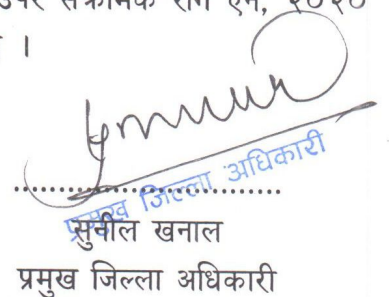 संक्रामक रोग ऐन, २०२०
।
प्रमुख जिल्ला अधिकारी
सुनील खनाल
प्रमुख जिल्ला अधिकारी